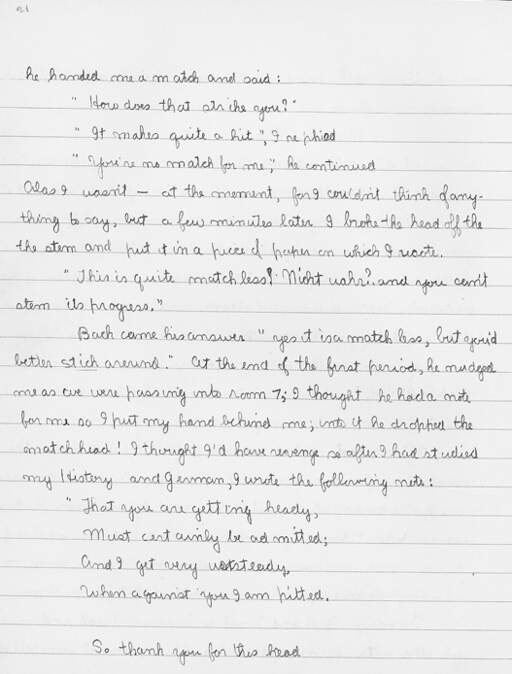 he handed me a match and said:
" How does that strike you?"
" It makes quite a hit", I replied
" You're no match for me," he continued
Alas I wasn't — at the moment, for I couldn't think of any-
thing to say, but a few minutes later I broke the head off the
the stem and put it in a piece of paper on which I wrote.
" This is quite matchless! Nicht wahr? and you can't
stem its progress."
Back came his answer " yes it is a match less, but you'd
better stick around." At the end of the first period, he nudged
me as we were passing into room 7; I thought he had a note
for me so I put my hand behind me; into it he dropped the
match head! I thought I'd have revenge so after I had studied
my History and German, I wrote the following note:
" That you are getting heady,
Must certainly be admitted;
And I get very unsteady,
When against you I am pitted.
So thank you for this head